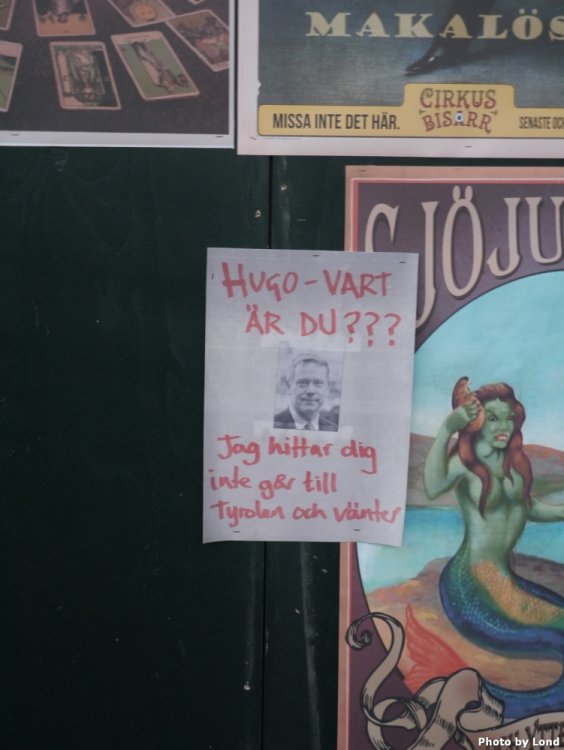 MAKALÖS
MISSA INTE DET HÄR.
CIRKUS
BISARR
SENASTE OCH
SJÖJU
HUGO-VART
ÄR DU???
Jag hittar dig
inte går till
Tyrolen och väntar
Photo by Lond